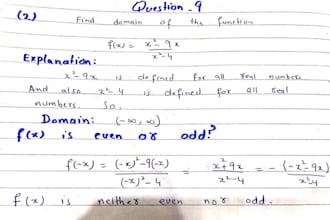 Question.9
(2) Find domain of the function
f(x) = x²-9x / x²-4
Explanation:
x²-9x is defined for all real numbers
And also x²-4 is defined for all real
numbers. So,
Domain: (-∞,∞)
f(x) is even or odd?
f(-x) = (-x)²-9(-x) / (-x)²-4 = x²+9x / x²-4 = - (-x²-9x) / x²-4
f(x) is neither even nor odd.